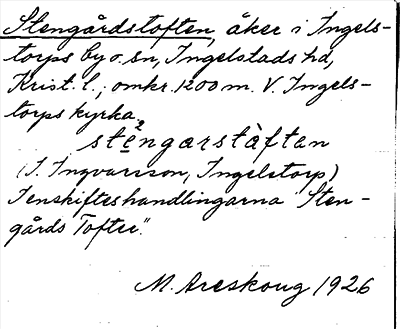 Stengårdstoften, åker i Ingels-
torps by o. sn, Ingelstads hd,
Krist. l., omkr. 1200 m. V. Ingels-
torps kyrka.
stengarstàftan
(J. Ingvarsson, Ingelstorp)
I enskifteshandlingarna "Sten-
gårds Tofter".
M. Areskoug 1926